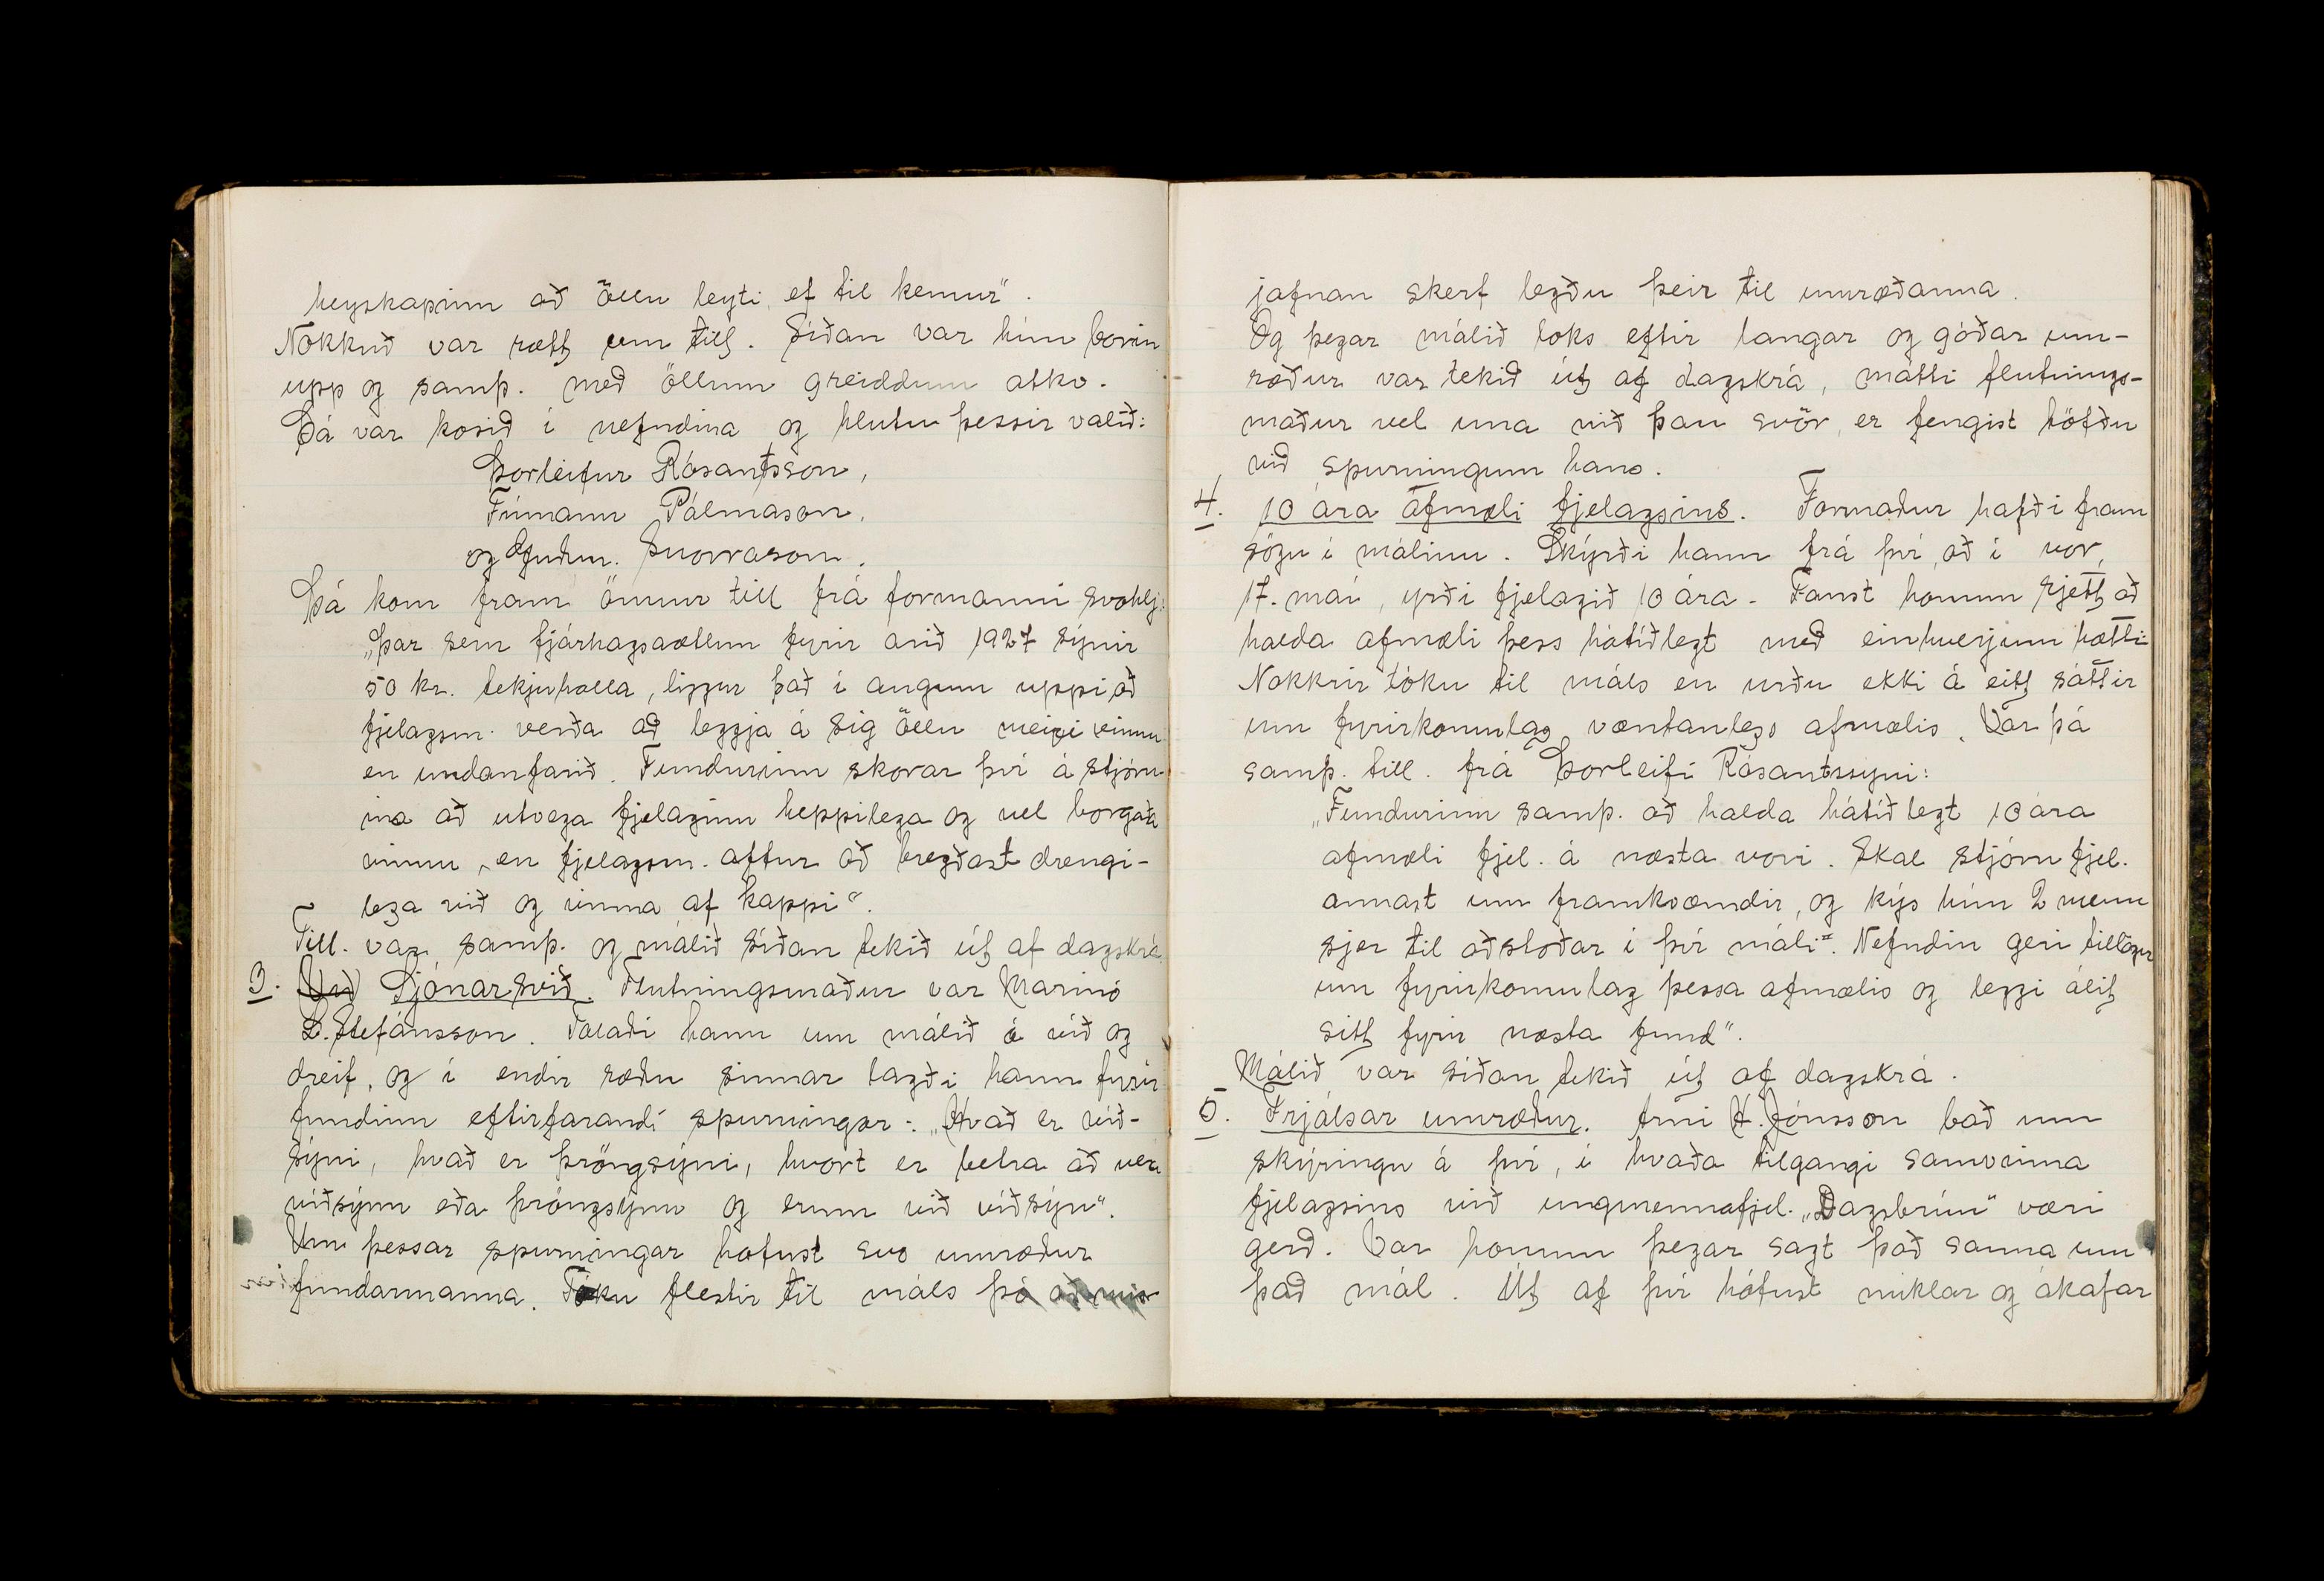 heyskapinn að öllu leyti, ef til kemur".
Nokkuð var rætt um till. Síðan var hún borin
upp og samþ. með öllum greiddum atkv.
Þá var kosið í nefndina og hlutu þessir valið:
Þorleifur Rósantsson,
Fímann Pálmason,
og Guðm. Snorrason.
Þá kom fram önnur till frá formanni svohlj:
„Þar sem fjárhagsaætlun fyrir arið 1927 sýnir
50 kr. tekjuhalla, liggur það í augum uppi, að
fjelagsm. verða að leggja á sig öllu meiri vinnu
en undanfarið. Fundurinn skorar því á stjórn-
ina að utvega fjelaginu heppilega og vel borgaða
vinnu, en fjelagsm. aftur að bregðast drengi-
lega við og vinna af kappi".
Till. var samþ. og málið síðan tekið út af dagskrá.
3. Sjónarsvið. Flutningsmaður var Marinó
L. Stefánsson. Talaði hann um málið á víð og
dreif, og í endir ræðu sinnar lagði hann fyrir
fundinn eftirfarandi spurningar: „Hvað er víð-
sýni, hvað er þröngsýni, hvort er betra að vera
víðsýnn eða þröngsýnn og erum við víðsýn".
Um þessar spurningar hófust svo umræður
fundarmanna. Tóku flestir til máls þó að mis-
jafnan skerf legðu þeir til umræðanna.
Og þegar málið loks eftir langar og góðar um-
ræður var tekið út af dagskrá, mátti flutnings-
maður vel una við þau svör, er fengist höfðu
við spurningum hans.
4. 10 ára afmæli fjelagsins. Formaður hafði fram
sögu í málinu. Skýrði hann frá því, að í vor,
17. maí, yrði fjelagið 10 ára. Fanst honum rjett að
halda afmæli þess hátíðlegt með einhverjum hætti.
Nokkrir tóku til máls en urðu ekki á eitt sáttir
um fyrirkomulag væntanlegs afmælis. Var þá
samþ. till. frá Þorleifi Rósantssyni:
„Fundurinn samþ. að halda hátíðlegt 10 ára
afmæli fjel. á næsta vori. Skal stjórn fjel.
annast um framkvæmdir, og kýs hún 2 menn
sjer til aðstoðar í því máli". Nefndin geri tillögur
um fyrirkomulag þessa afmælis og leggi álit
sitt fyrir næsta fund".
Málið var síðan tekið út af dagskrá.
5. Frjálsar umræður. Árni H. Jónsson bað um
skýringu á því, í hvaða tilgangi samvinna
fjelagsins við ungmennafjel. „Dagsbrún" væri
gerð. Var honum þegar sagt það sanna um
það mál. Út af því hófust miklar og ákafar